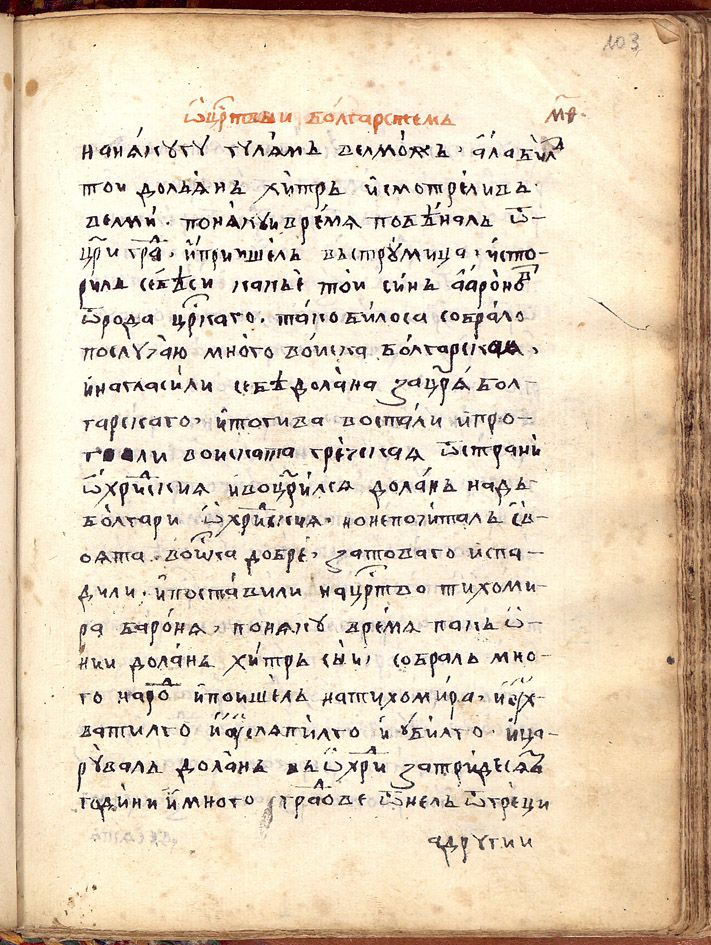 103
ѿ црⷭ҇твѣи болгарстемъ м҃ѳ.
нанѧкуѓу гулѧмъ велможъ · а́лабилъ
тои долѧ́нъ хи́тръ и҆смотрели́въ
велми́ · понѧкуи врѣ́мѧ побѣгналъ ѿ
цр҃и гра́д · и҆прии́шелъ въструмица · и҆сто-
рилъ себѣси какъе тои си́нъ а҆аро́новъ
ѿрода црⷭ҇каго · тако било́са собра́ло
послу́чаю мно́го во́иска бо́лгарскаѧ ·
и҆нагласи́ли себѣ долѧ́на зацр҃ѧ́ бол-
гарскаго · и҆тогива воста́ли и҆про-
гнали воиската гре́ческаѧ ѿстрани́
ѻ҆хри́дскиѧ и҆воцр҃и́лсѧ долѧ́нъ надъ
бо́лгари ѻ҆хри́дскиѧ · нонепочи́талъ св-
оѧта во́иска добре́ · затова́го и҆спа-
дили · и҆поста́вили нацрⷭ҇тво тихоми-
ра баро́нѧ · понѧ́ко врѣ́мѧ пакъ ѻ҆-
нии долѧ́нъ хи́тръ си́и · собралъ мно-
го наро́д и҆поише́лъ натихоми́ра · и҆ух-
ватилго и҆ослѧпи́лго и҆ уби́лго · и҆ца-
ру́валъ долѧ́нъ въ ѻ҆хри́д затри́десѧтъ
годи́ни и҆ много гра́дове ѿне́лъ ѿгре́ци
а҆другии